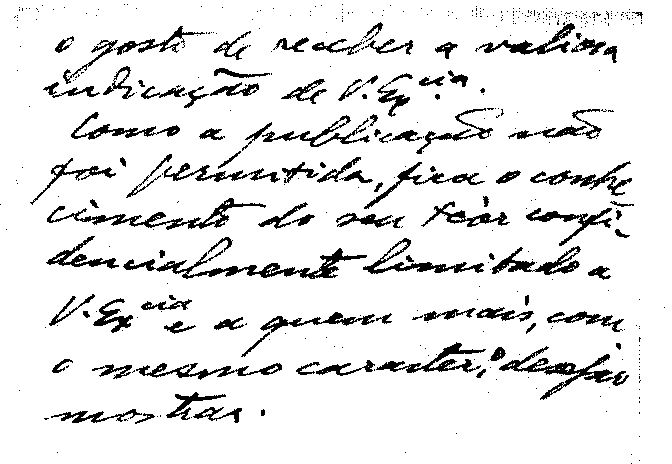 o gosto de receber a valiosa
indicação de V. Ex.cia.
Como a publicação não
foi permitida, fica o conhe
cimento do seu teôr confi-
dencialmente limitado a
V. Excia e a quem mais, com
o mesmo caracter, o desejar
mostrar.